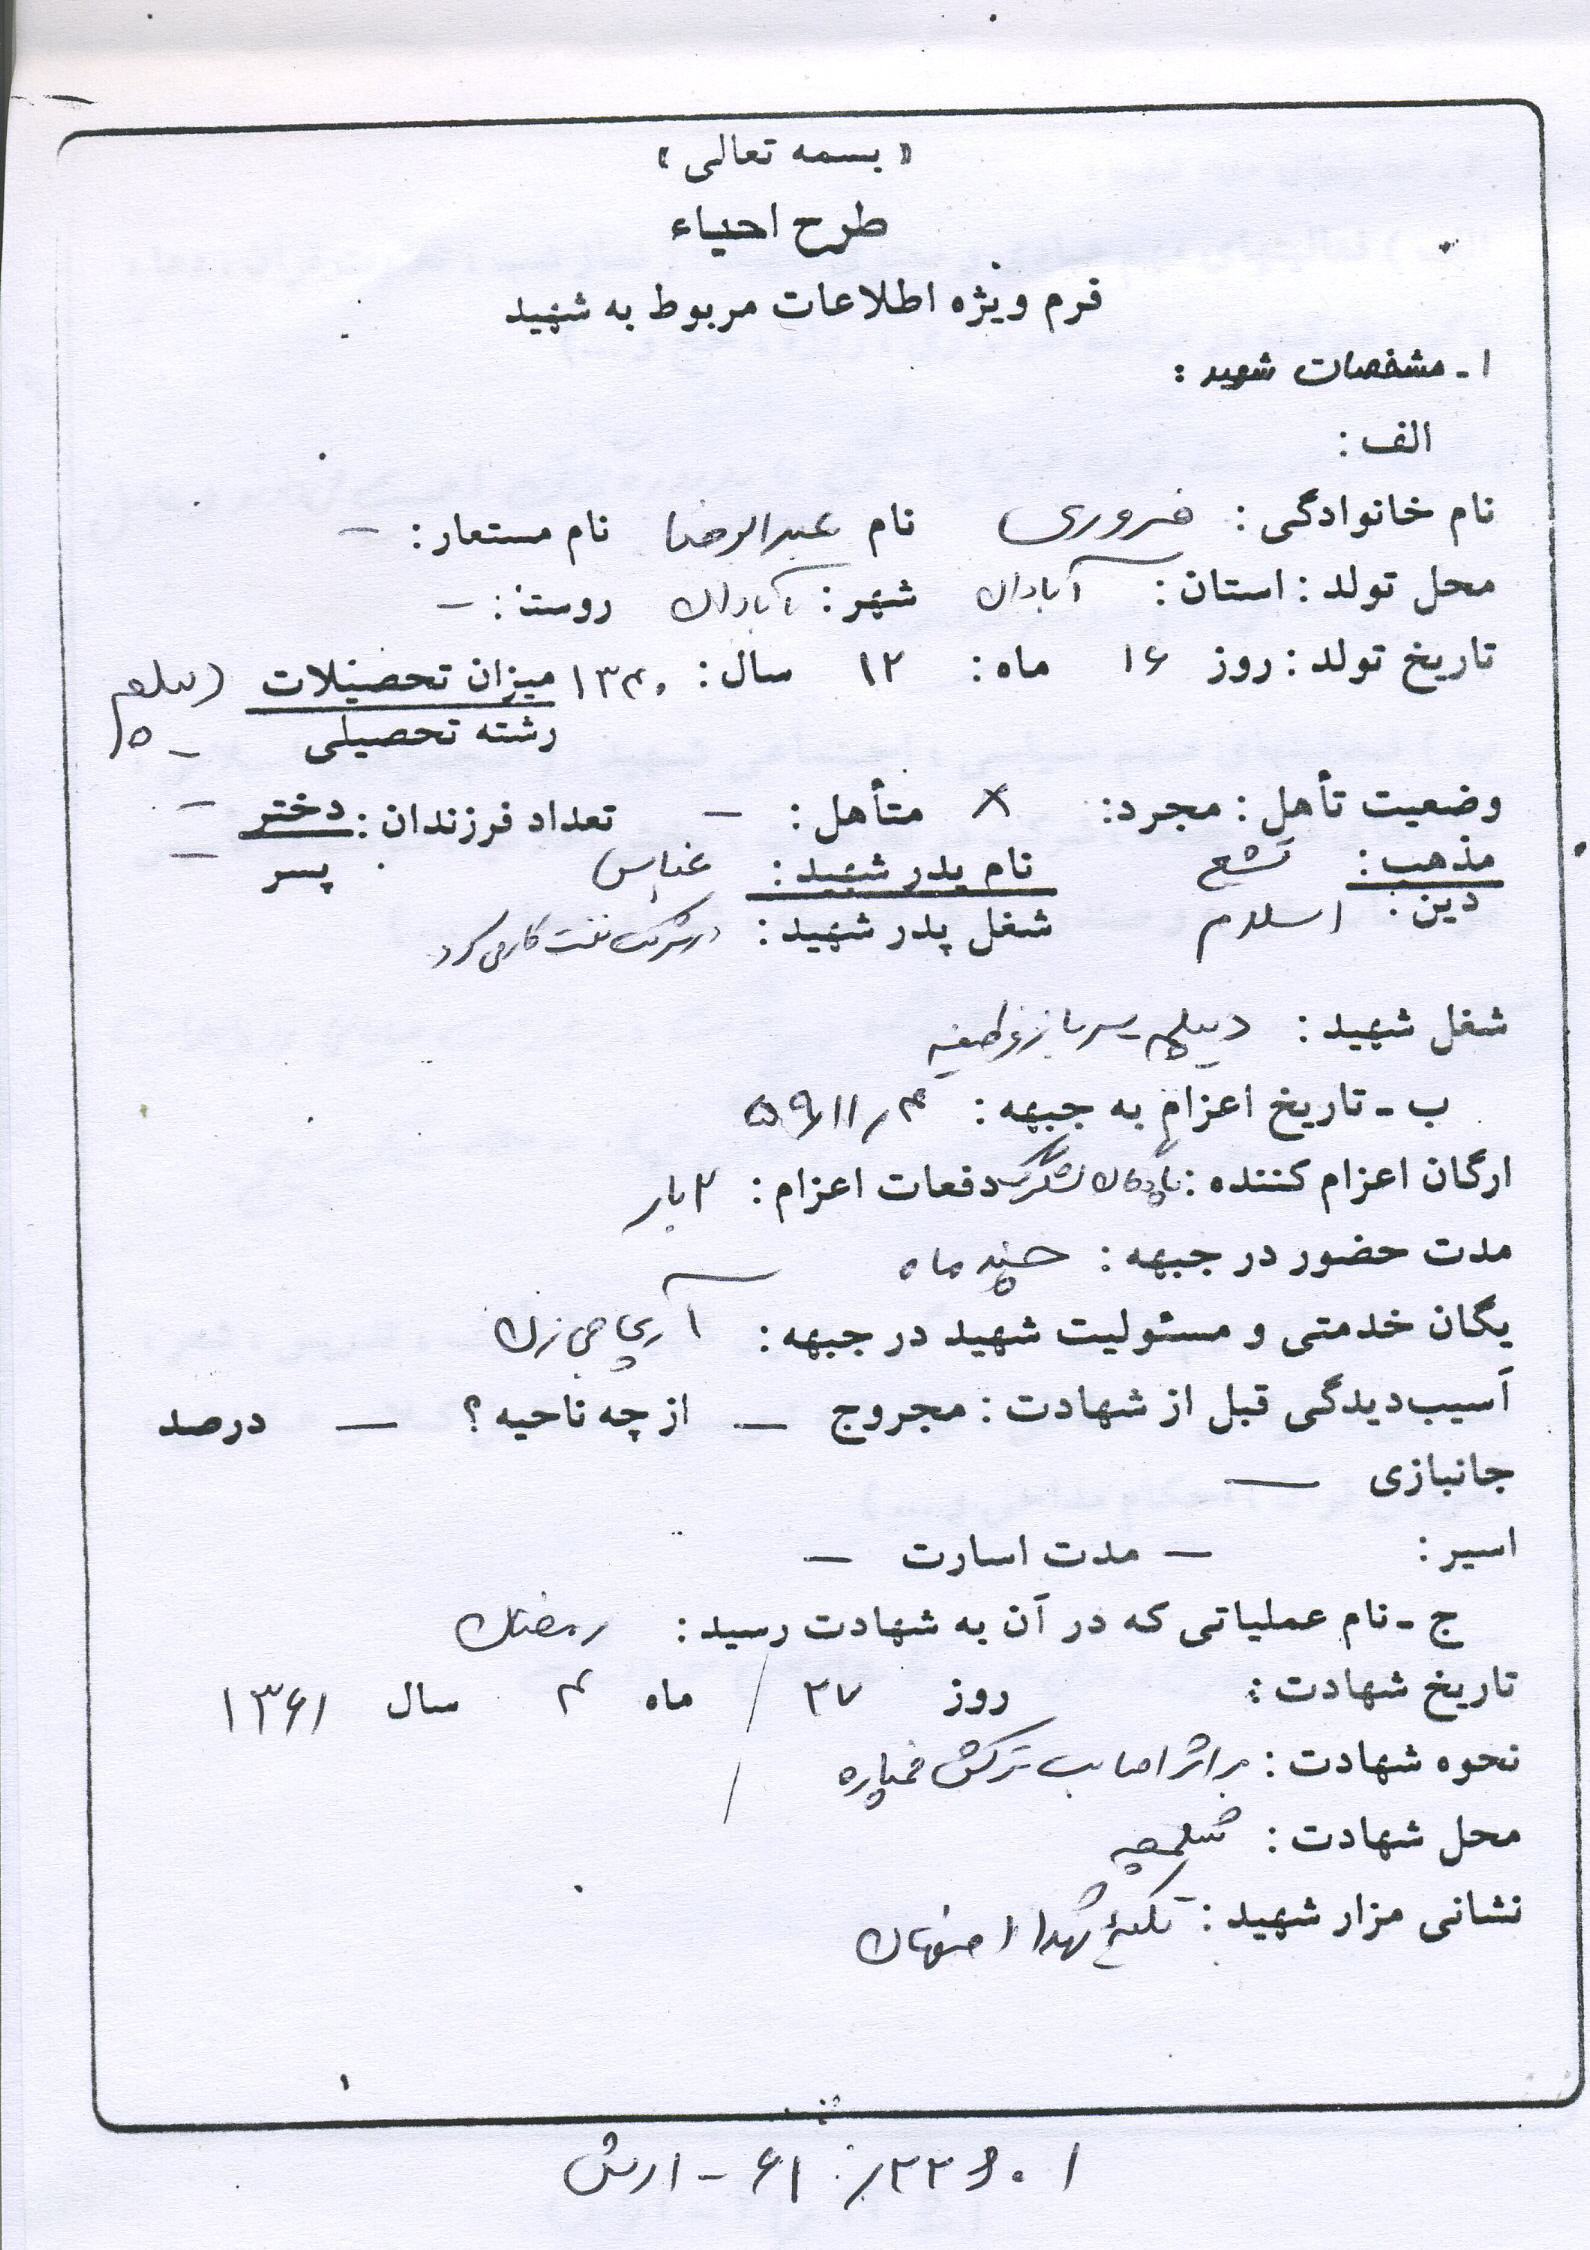 « بسمه تعالی »
طرح احیاء
فرم ویژه اطلاعات مربوط به شهید
۱ـ مشخصات شهید :
الف :
نام خانوادگی : ضروری نام عبدالرضا نام مستعار : –
محل تولد : استان : آبادان شهر : آبادان روستا : –
تاریخ تولد : روز ۱۶ ماه : ۱۲ سال : ۱۳۴۰ میزان تحصیلات دیپلم
رشته تحصیلی –
وضعیت تأهل : مجرد : × متأهل : – تعداد فرزندان : دختر –
پسر –
مذهب : تشیع نام پدر شهید : عباس
دین : اسلام شغل پدر شهید : در شرکت نفت کار می کرد
شغل شهید : دیپلم سرباز وظیفه
ب ـ تاریخ اعزام به جبهه : ۵۹/۱۱/۴
ارگان اعزام کننده : پادگان لشگرک دفعات اعزام : ۲ بار
مدت حضور در جبهه : چند ماه
یگان خدمتی و مسئولیت شهید در جبهه : آرپی جی زن
آسیب‌دیدگی قبل از شهادت : مجروح – از چه ناحیه ؟ – درصد
جانبازی –
اسیر : – مدت اسارت –
ج ـ نام عملیاتی که در آن به شهادت رسید : رمضان
تاریخ شهادت : روز ۲۷ ماه ۴ سال ۱۳۶۱
نحوه شهادت : بر اثر اصابت ترکش خمپاره
محل شهادت : شلمچه
نشانی مزار شهید : تکیه شهدا اصفهان
۱
۶۱ – ارتش